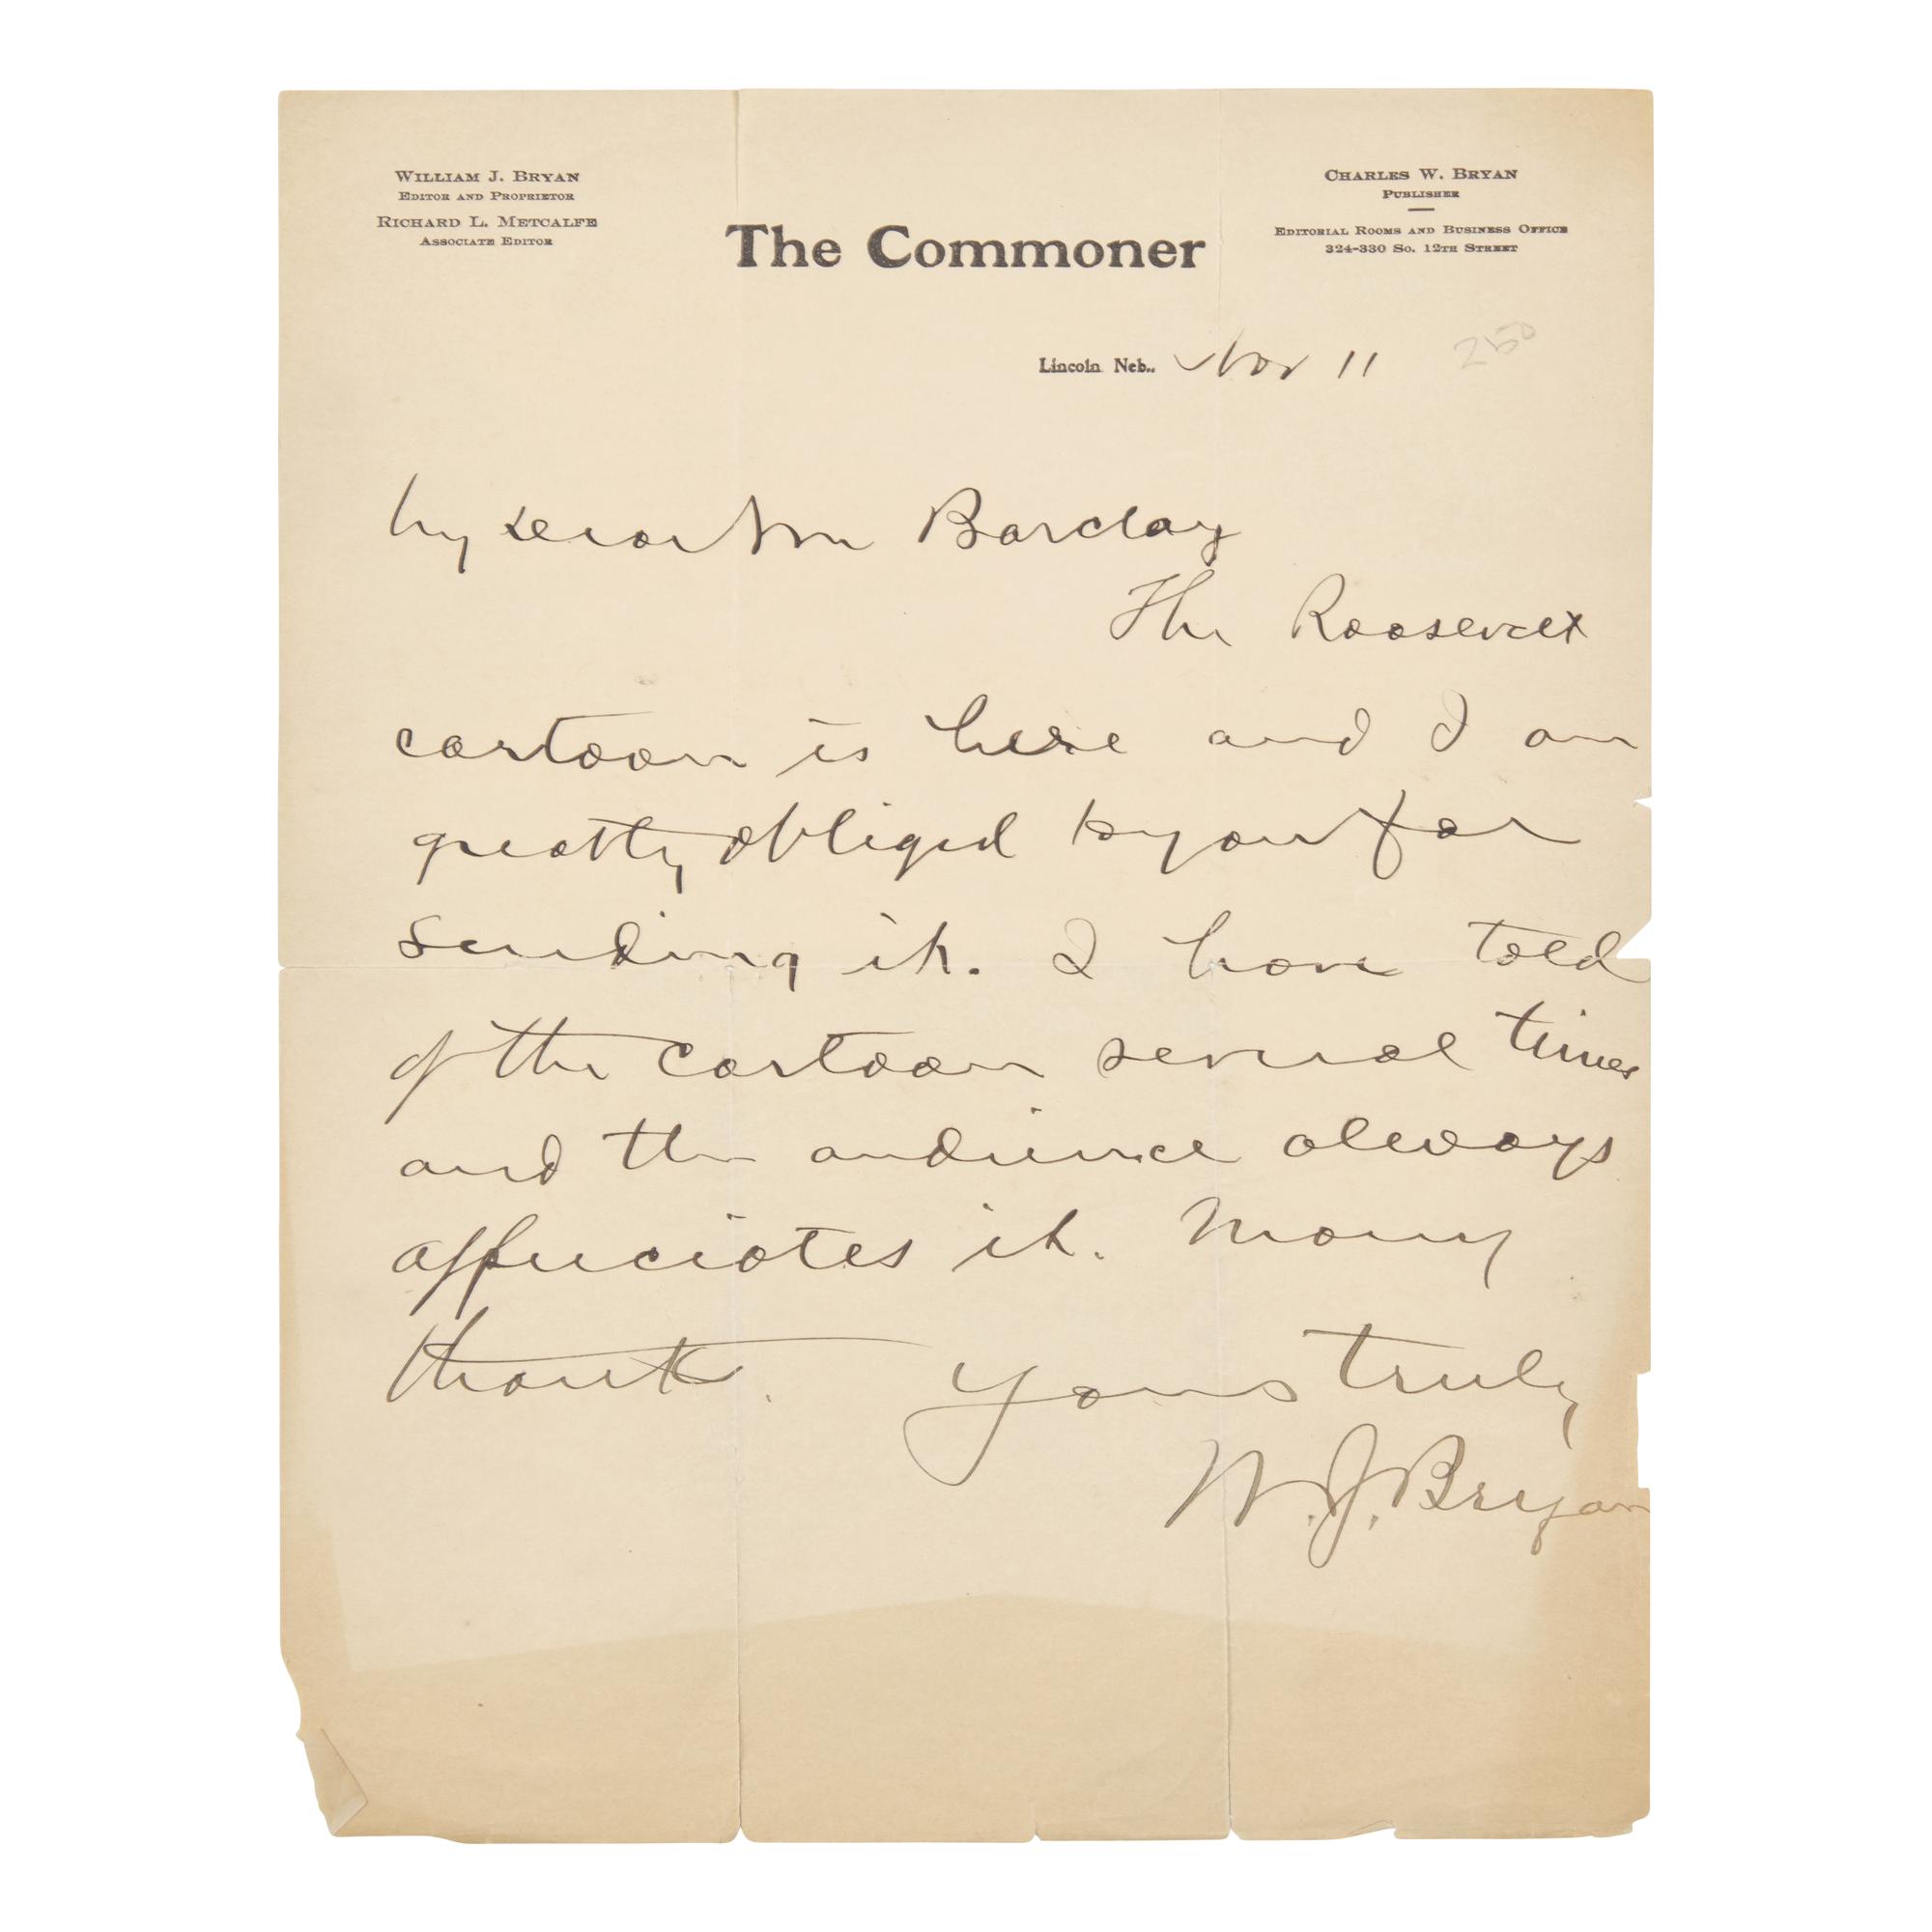 WILLIAM J. BRYAN
EDITOR AND PROPRIETOR
RICHARD L. METCALFE
ASSOCIATE EDITOR
The Commoner
CHARLES W. BRYAN
PUBLISHER
EDITORIAL ROOMS AND BUSINESS OFFICE
324-330 SO. 12TH STREET
Lincoln Neb., Nov 11
250
My dear Mr Barclay
The Roosevelt
cartoon is here and I am
greatly obliged to you for
sending it. I have told
of the cartoon several times
and the audience always
appreciates it. Many
thanks. Yours truly
W. J. Bryan